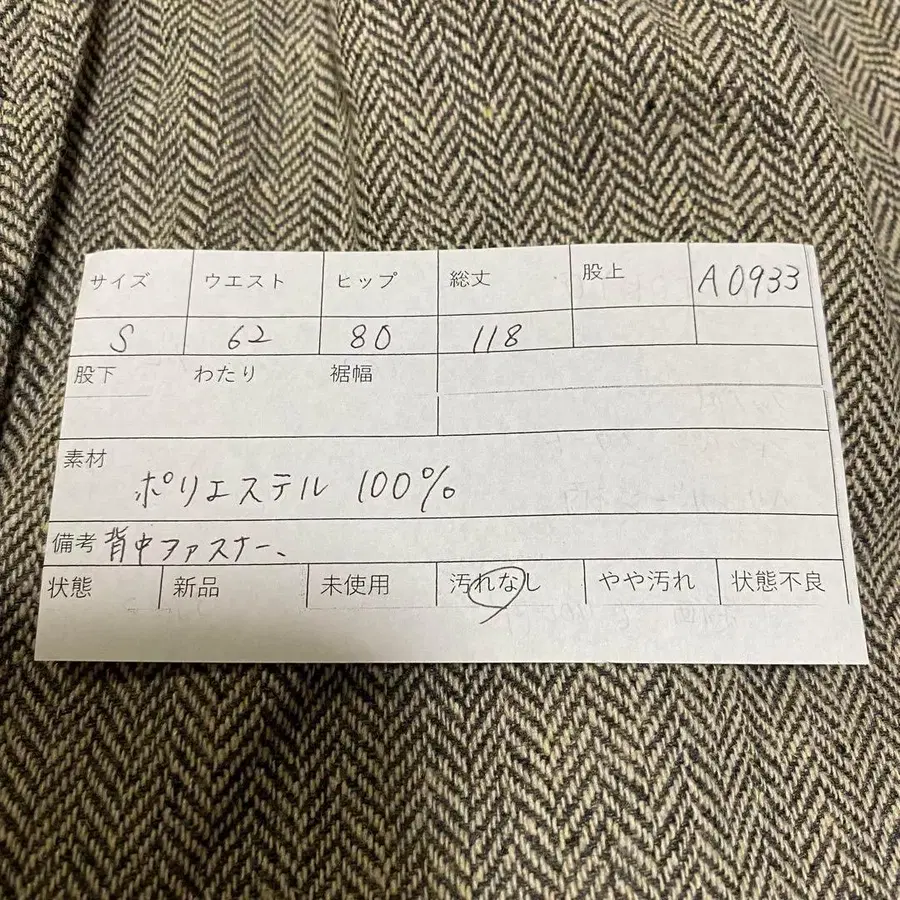 サイズ ウエスト ヒップ 総丈 股上 A0933
S 62 80 118
股下 わたり 裾幅
素材
ポリエステル 100%
備考 背中ファスナー、
状態 新品 未使用 汚れなし やや汚れ 状態不良